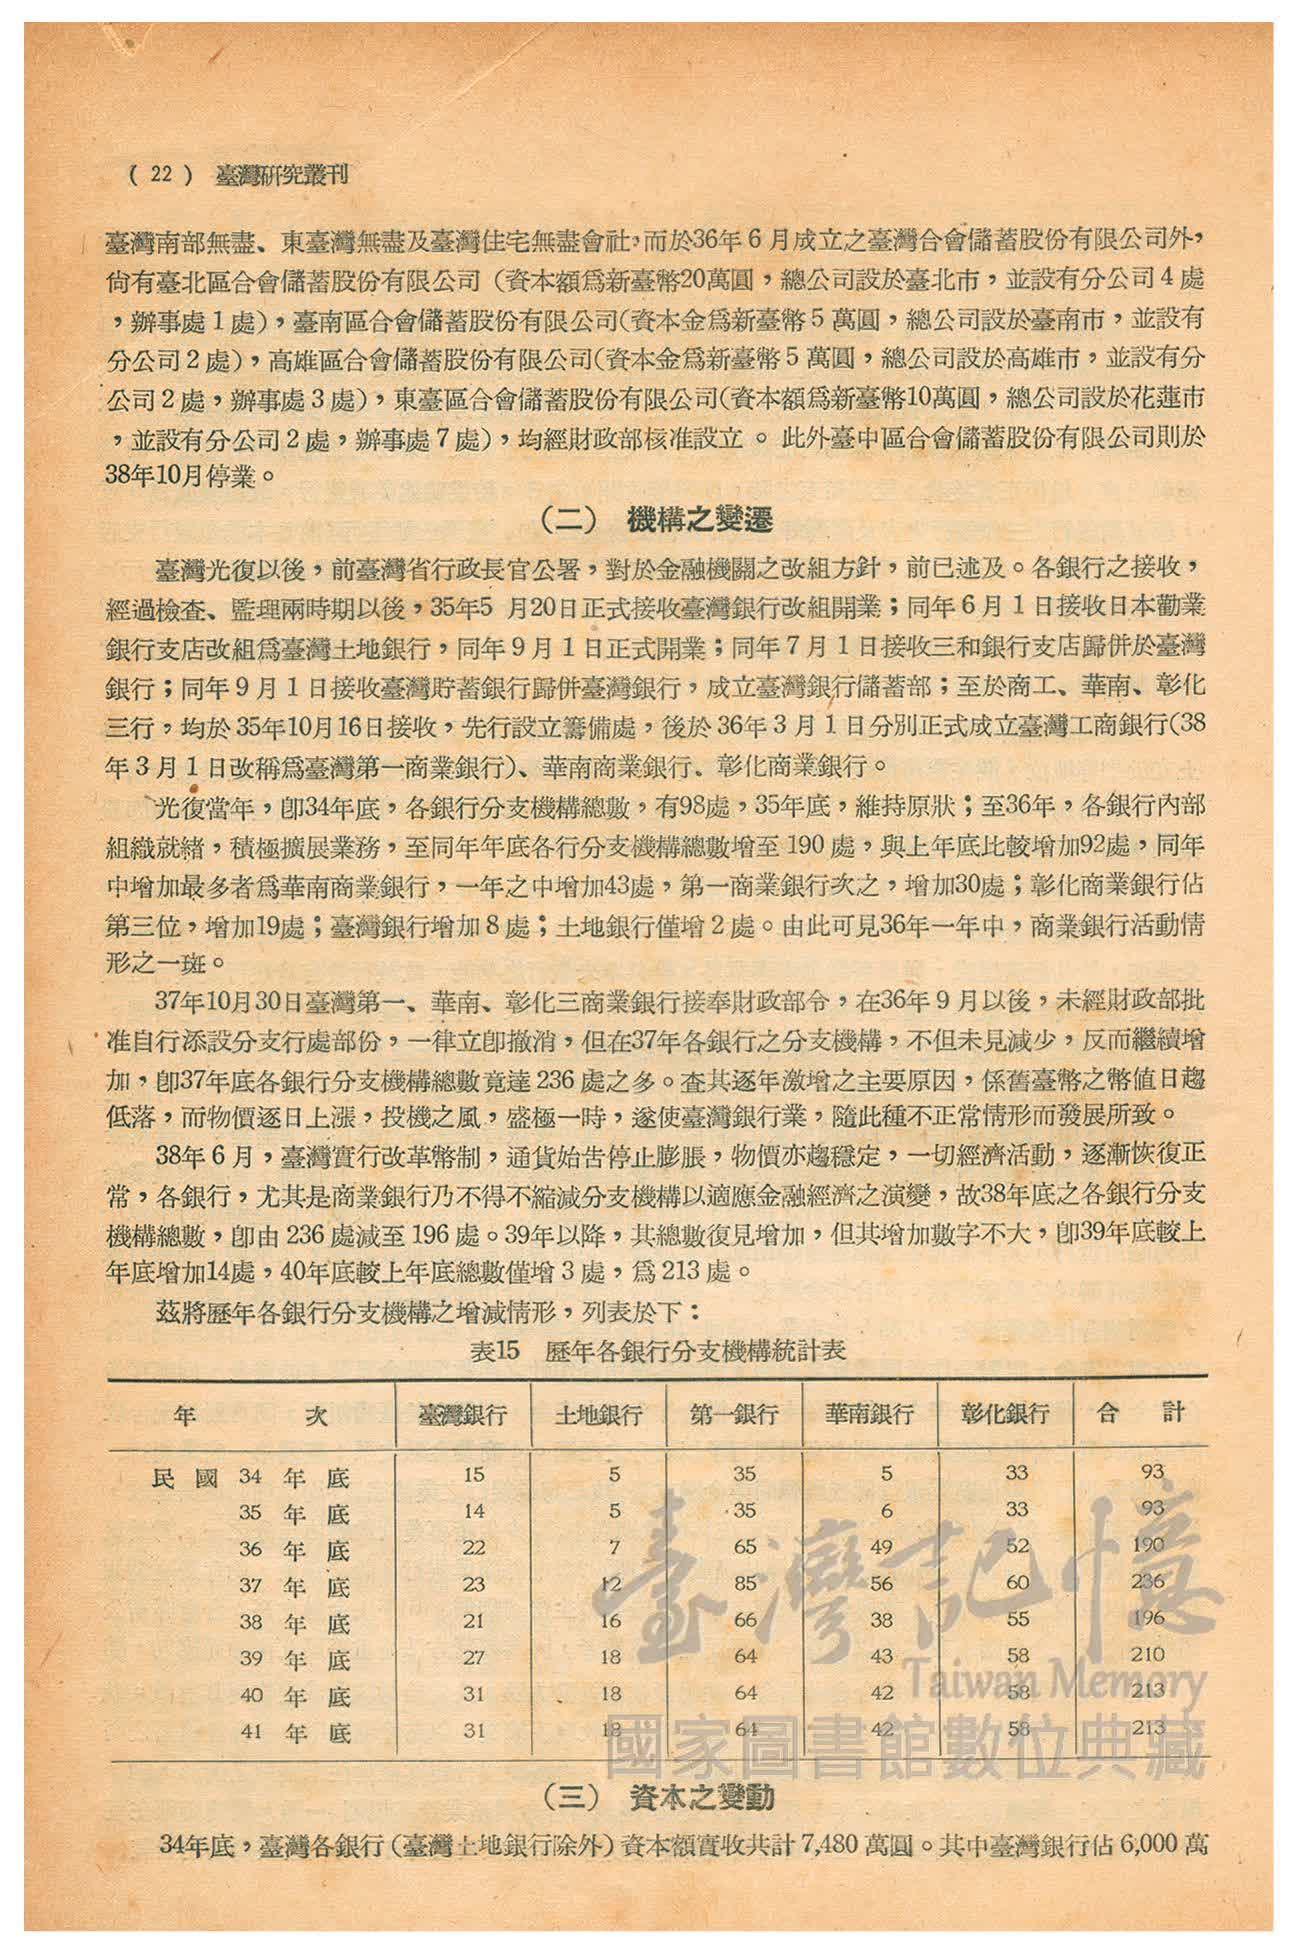 ( 22 ) 臺灣研究叢刊
臺灣南部無盡、東臺灣無盡及臺灣住宅無盡會社，而於36年6月成立之臺灣合會儲蓄股份有限公司外，
尙有臺北區合會儲蓄股份有限公司（資本額爲新臺幣20萬圓，總公司設於臺北市，並設有分公司4處
，辦事處1處），臺南區合會儲蓄股份有限公司（資本金爲新臺幣5萬圓，總公司設於臺南市，並設有
分公司2處），高雄區合會儲蓄股份有限公司（資本金爲新臺幣5萬圓，總公司設於高雄市，並設有分
公司2處，辦事處3處），東臺區合會儲蓄股份有限公司（資本額爲新臺幣10萬圓，總公司設於花蓮市
，並設有分公司2處，辦事處7處），均經財政部核准設立。此外臺中區合會儲蓄股份有限公司則於
38年10月停業。
（二） 機構之變遷
臺灣光復以後，前臺灣省行政長官公署，對於金融機關之改組方針，前已述及。各銀行之接收，
經過檢查、監理兩時期以後，35年5月20日正式接收臺灣銀行改組開業；同年6月1日接收日本勸業
銀行支店改組爲臺灣土地銀行，同年9月1日正式開業；同年7月1日接收三和銀行支店歸併於臺灣
銀行；同年9月1日接收臺灣貯蓄銀行歸併臺灣銀行，成立臺灣銀行儲蓄部；至於商工、華南、彰化
三行，均於35年10月16日接收，先行設立籌備處，後於36年3月1日分別正式成立臺灣工商銀行(38
年3月1日改稱爲臺灣第一商業銀行)、華南商業銀行、彰化商業銀行。
光復當年，卽34年底，各銀行分支機構總數，有98處，35年底，維持原狀；至36年，各銀行內部
組織就緒，積極擴展業務，至同年年底各行分支機構總數增至190處，與上年底比較增加92處，同年
中增加最多者爲華南商業銀行，一年之中增加43處，第一商業銀行次之，增加30處；彰化商業銀行佔
第三位，增加19處；臺灣銀行增加8處；土地銀行僅增2處。由此可見36年一年中，商業銀行活動情
形之一斑。
37年10月30日臺灣第一、華南、彰化三商業銀行接奉財政部令，在36年9月以後，未經財政部批
准自行添設分支行處部份，一律立卽撤消，但在37年各銀行之分支機構，不但未見減少，反而繼續增
加，卽37年底各銀行分支機構總數竟達236處之多。查其逐年激增之主要原因，係舊臺幣之幣值日趨
低落，而物價逐日上漲，投機之風，盛極一時，遂使臺灣銀行業，隨此種不正常情形而發展所致。
38年6月，臺灣實行改革幣制，通貨始告停止膨脹，物價亦趨穩定，一切經濟活動，逐漸恢復正
常，各銀行，尤其是商業銀行乃不得不縮減分支機構以適應金融經濟之演變，故38年底之各銀行分支
機構總數，卽由236處減至196處。39年以降，其總數復見增加，但其增加數字不大，卽39年底較上
年底增加14處，40年底較上年底總數僅增3處，爲213處。
茲將歷年各銀行分支機構之增減情形，列表於下：
表15　歷年各銀行分支機構統計表
年　次 臺灣銀行 土地銀行 第一銀行 華南銀行 彰化銀行 合　計
民國 34 年 底 15 5 35 5 33 93
35 年 底 14 5 35 6 33 93
36 年 底 22 7 65 49 52 190
37 年 底 23 12 85 56 60 236
38 年 底 21 16 66 38 55 196
39 年 底 27 18 64 43 58 210
40 年 底 31 18 64 42 58 213
41 年 底 31 18 64 42 58 213
臺灣記憶
Taiwan Memory
國家圖書館數位典藏
（三） 資本之變動
34年底，臺灣各銀行（臺灣土地銀行除外）資本額實收共計7,480萬圓。其中臺灣銀行佔6,000萬